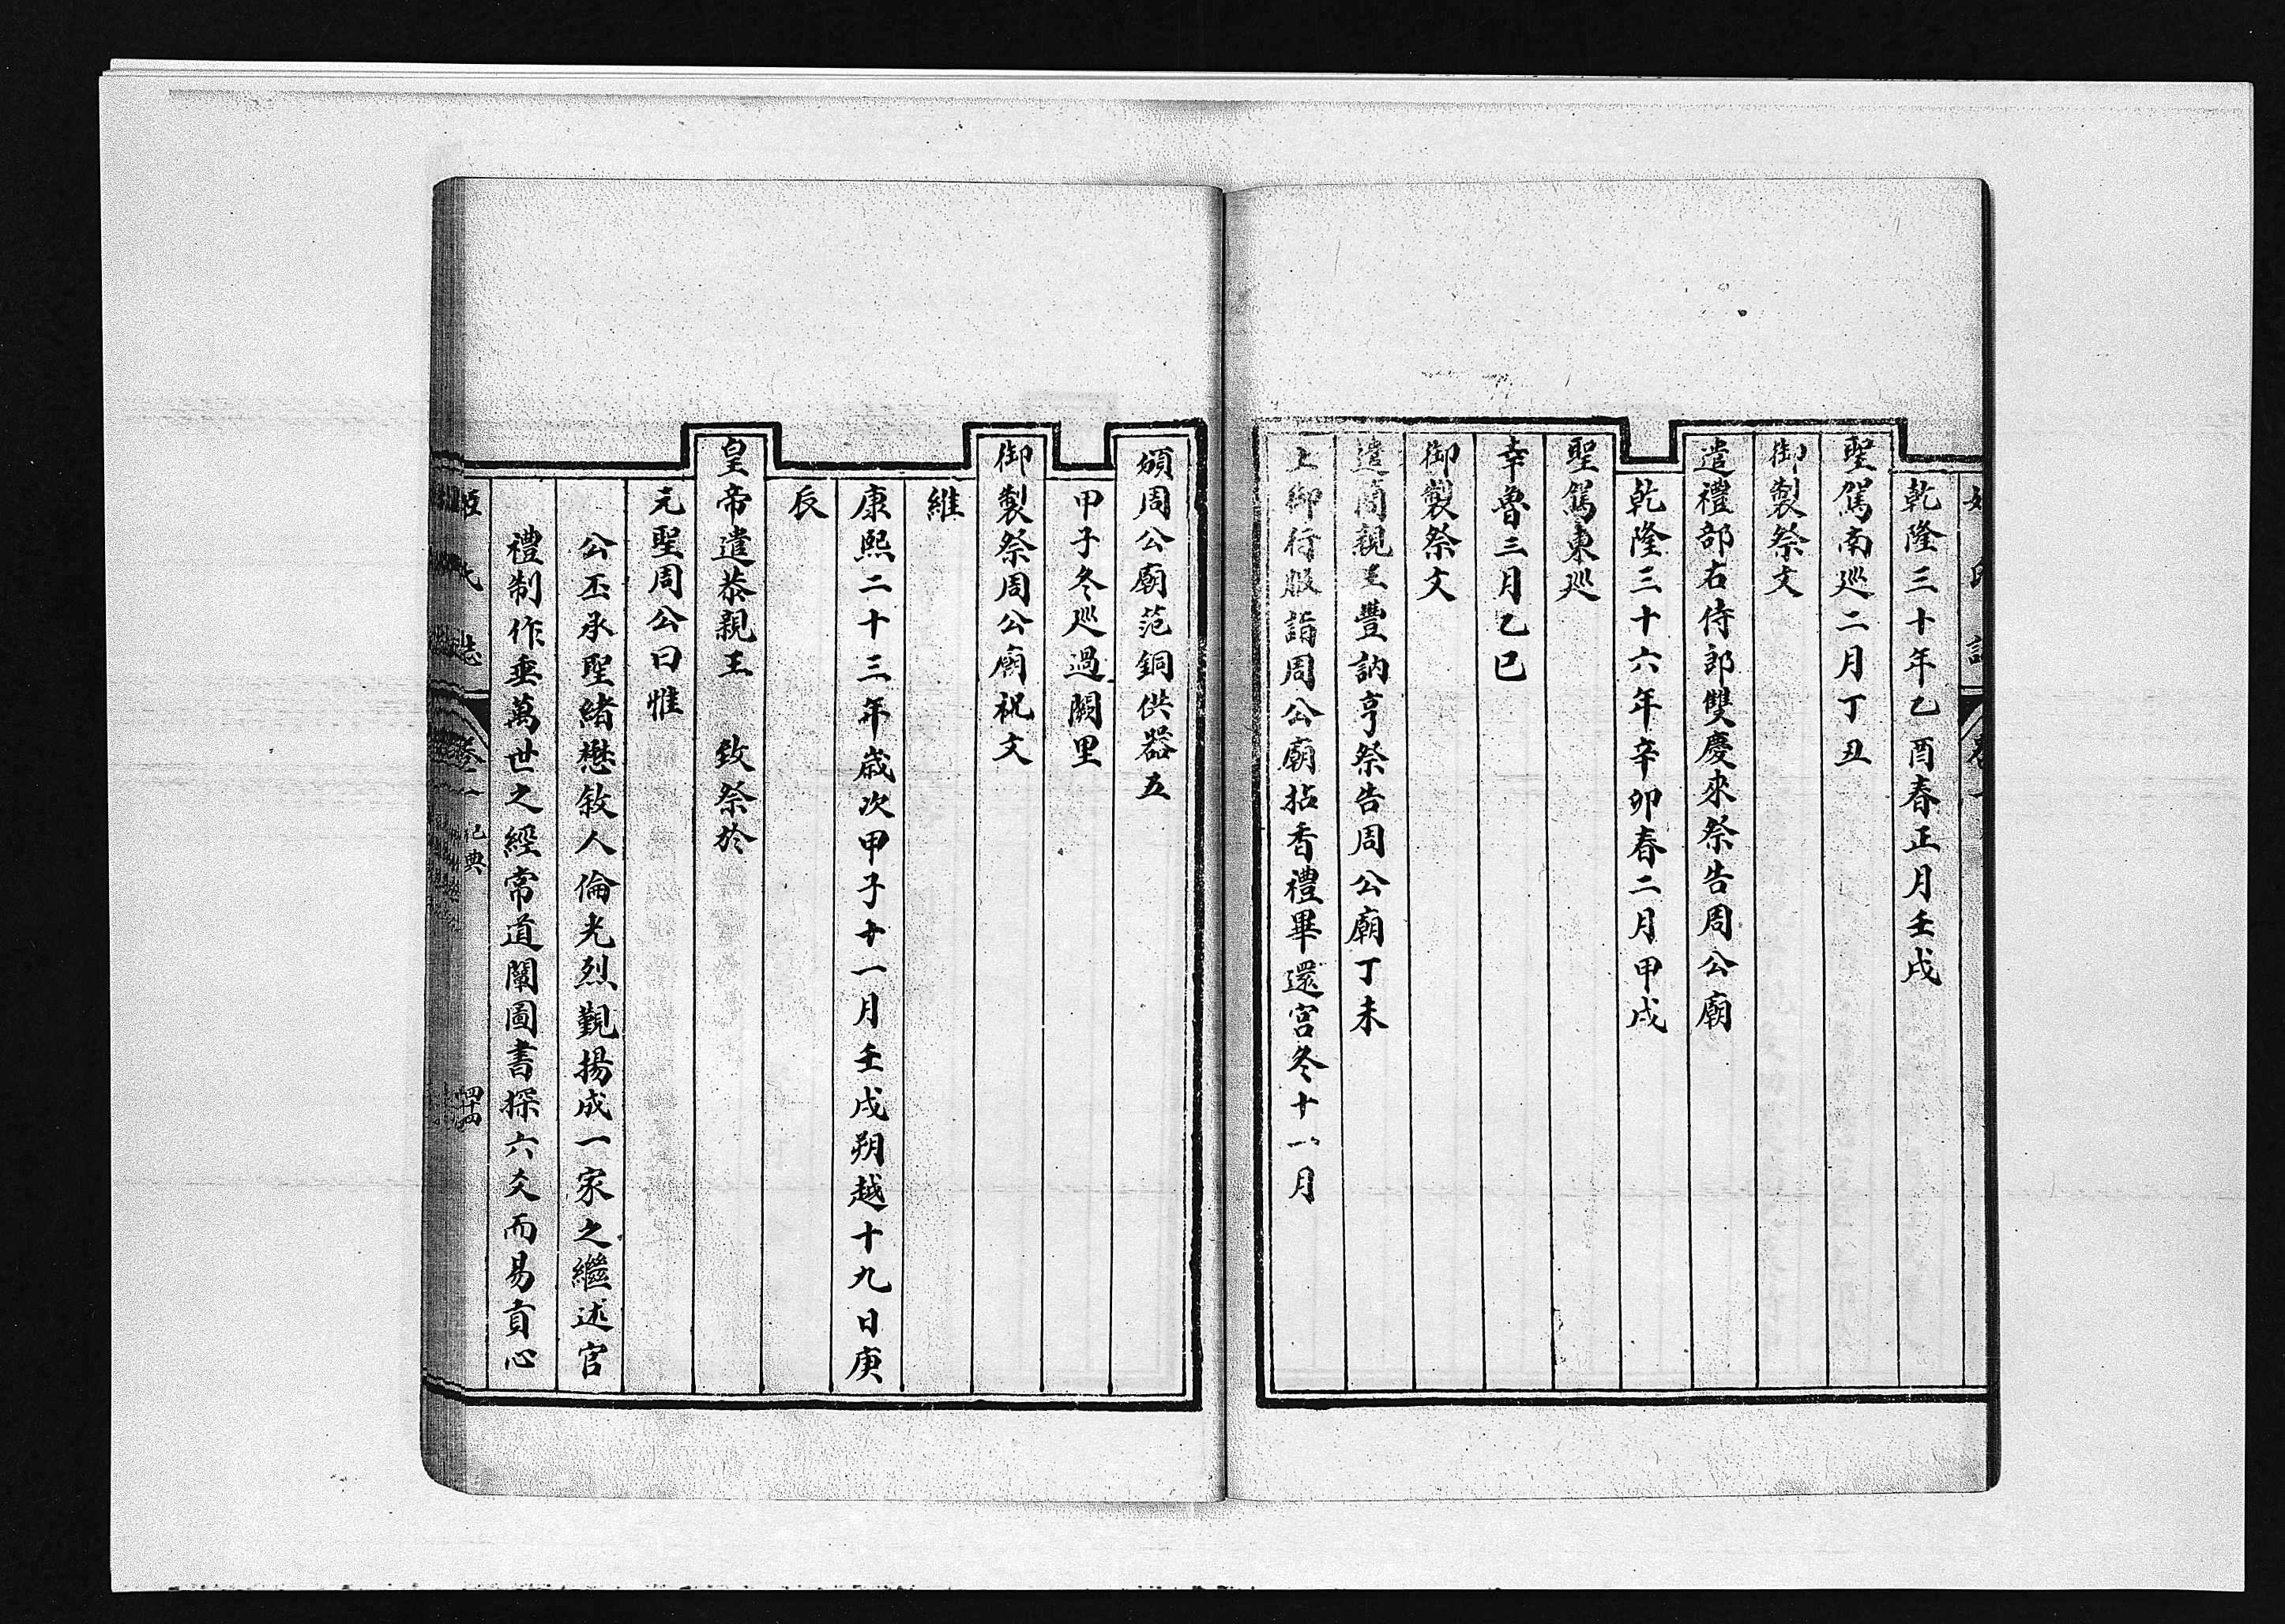 乾隆三十年乙酉春正月壬戌
聖駕南巡二月丁丑
御製祭文
遣禮部右侍郎雙慶來祭告周公廟
乾隆三十六年辛卯春二月甲戌
聖駕東巡
幸魯三月乙巳
御製祭文
遣簡親王豐訥亨祭告周公廟丁未
上御行服詣周公廟拈香禮畢還宮冬十一月
頒周公廟范銅供器五
甲子冬巡過闕里
御製祭周公廟祝文
維
康熙二十三年歲次甲子十一月壬戌朔越十九日庚
辰
皇帝遣恭親王 致祭於
元聖周公曰惟
公丕承聖緒懋敘人倫光烈觐揚成一家之繼述官
禮制作垂萬世之經常道闡圖書探六爻而易貢心
姬氏志 卷一 祀典 四十四